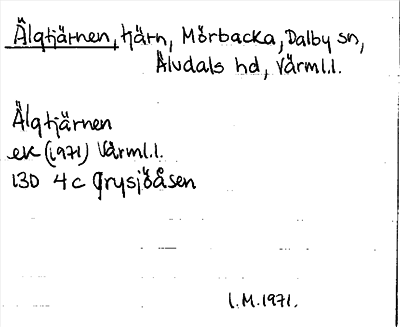 Älgtjärnen, tjärn, Mörbacka, Dalby sn,
Älvdals hd, Värml.l.
Älgtjärnen
ek (1971) Värml.l.
13D 4c Grysjöåsen
I.M.1971.